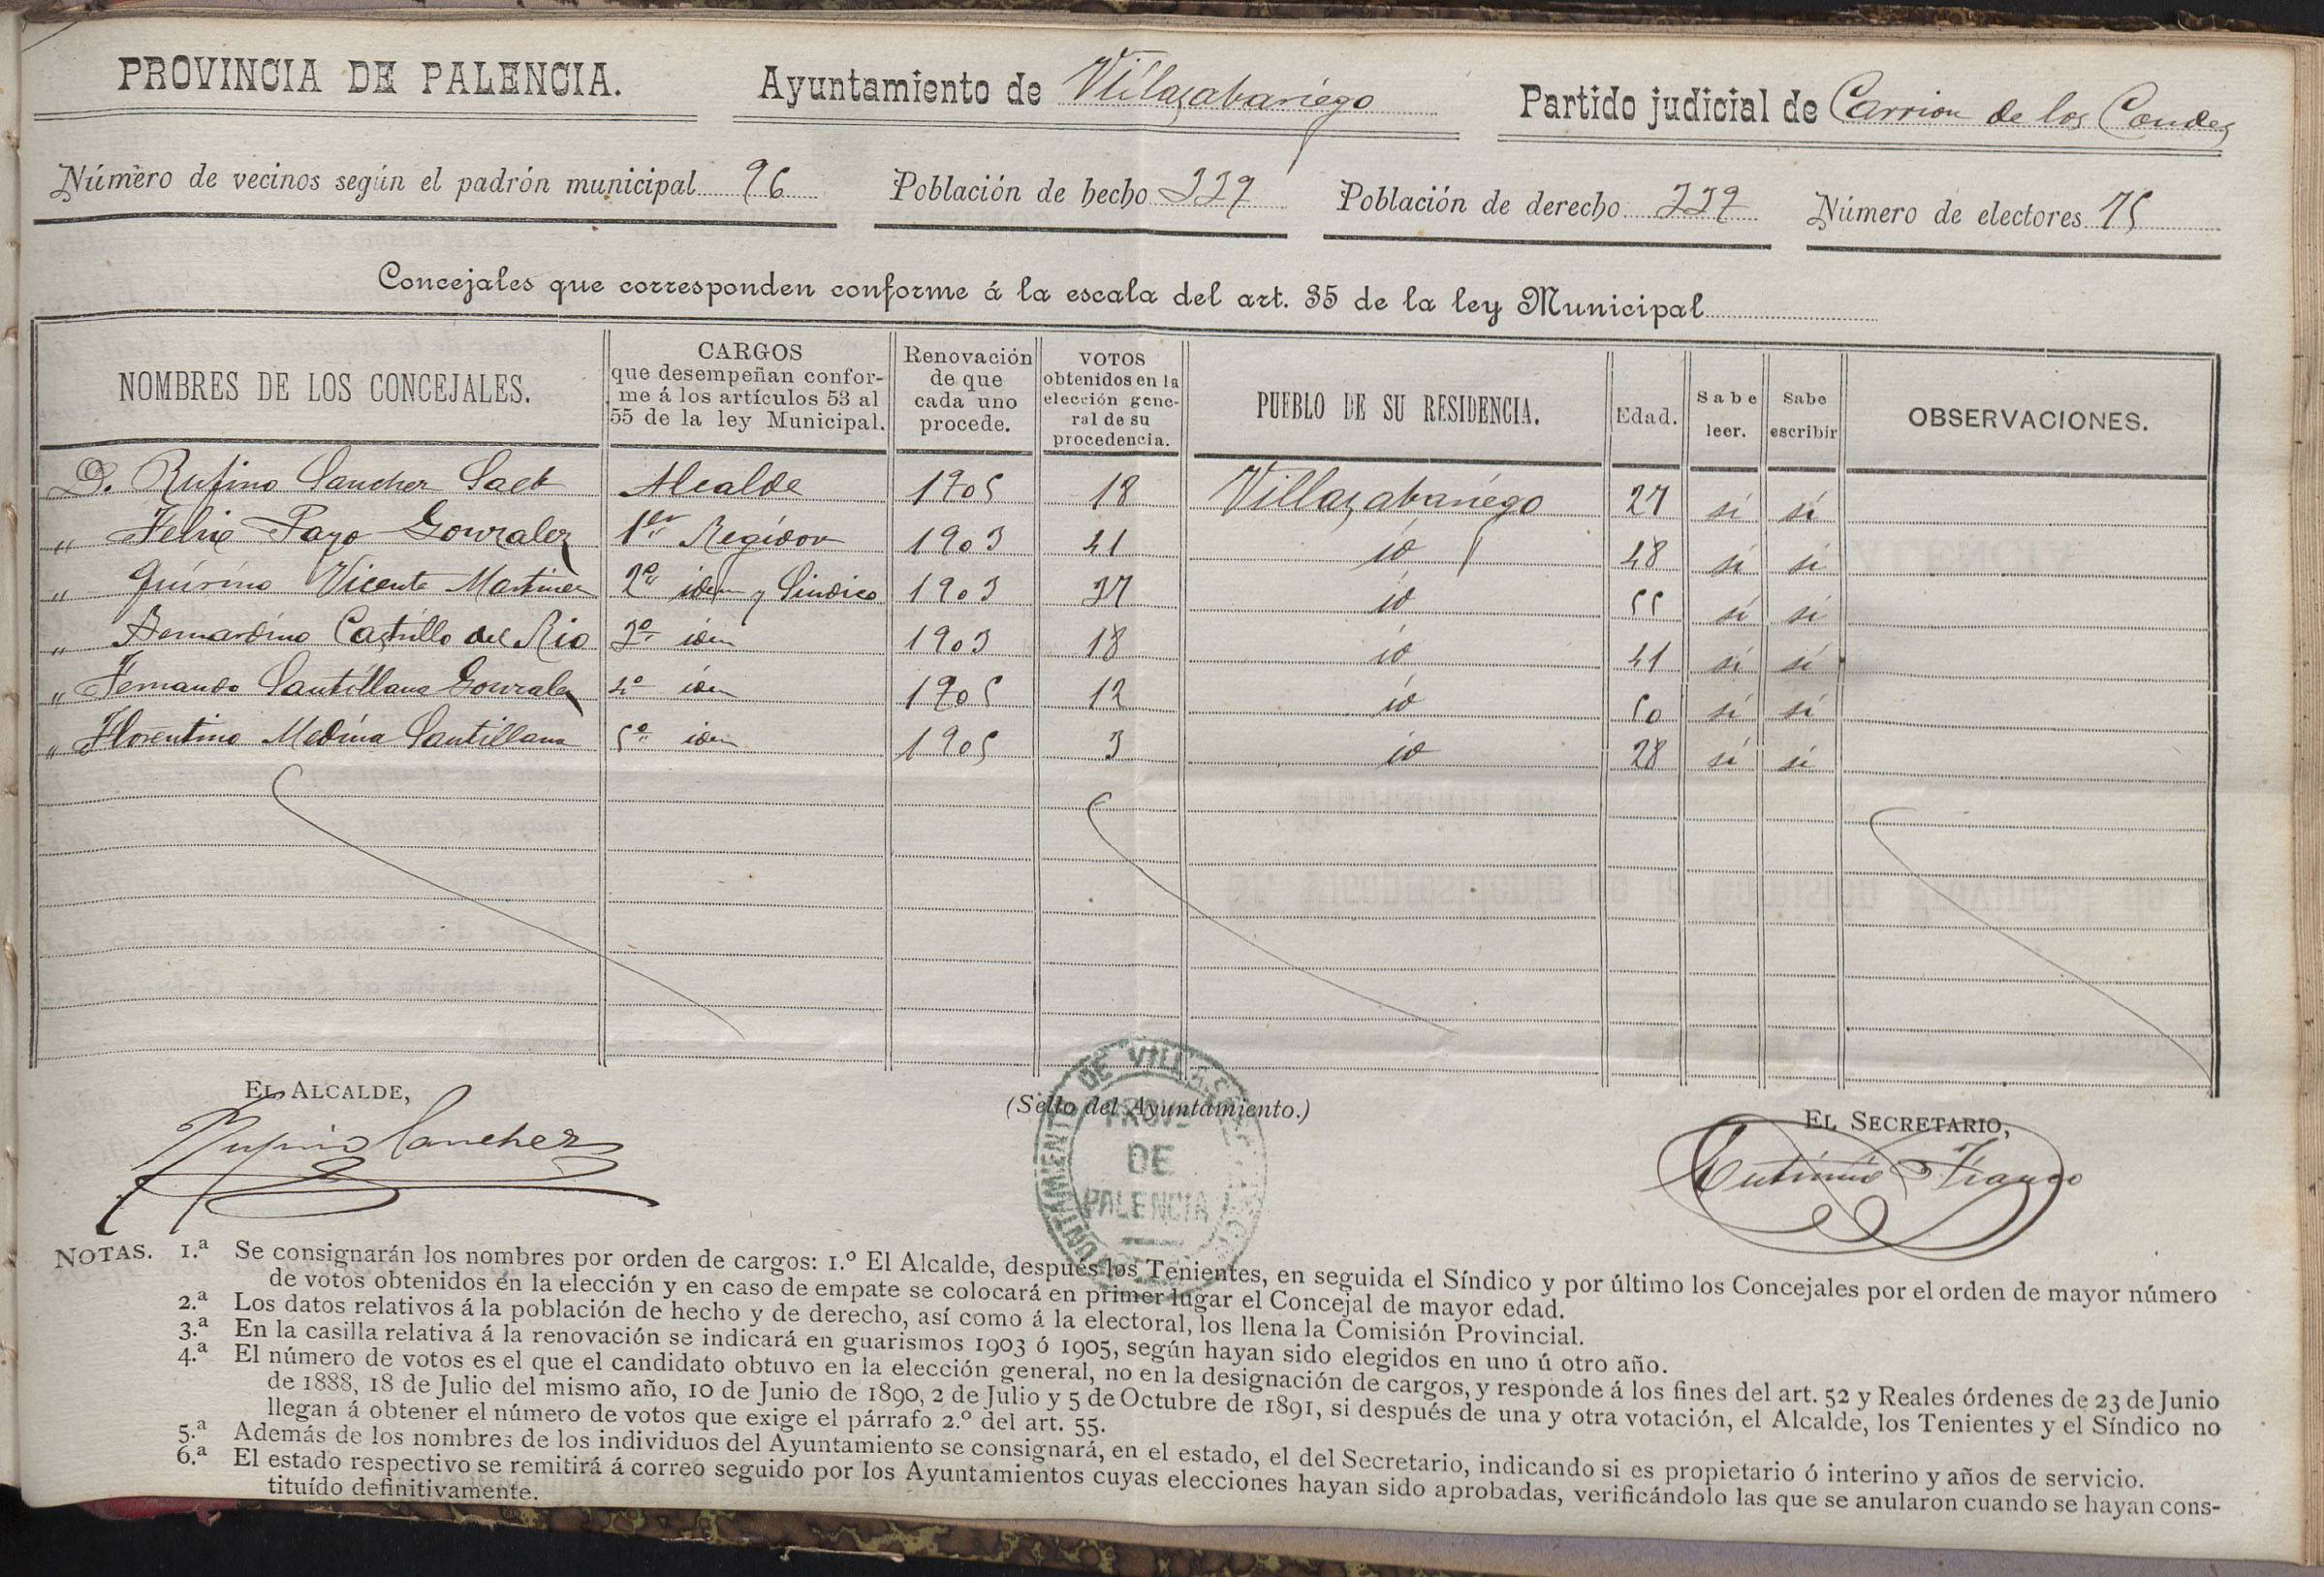 PROVINCIA DE PALENCIA. Ayuntamiento de Villasabariego Partido judicial de Carrion de los Condes
Número de vecinos según el padrón municipal 96 Población de hecho 339 Población de derecho 339 Número de electores 75
Concejales que corresponden conforme á la escala del art. 35 de la ley Municipal
NOMBRES DE LOS CONCEJALES. CARGOS que desempeñan conforme á los artículos 53 al 55 de la ley Municipal. Renovación de que cada uno procede. VOTOS obtenidos en la elección general de su procedencia. PUEBLO DE SU RESIDENCIA. Edad. Sabe leer. Sabe escribir OBSERVACIONES.
D. Rufino Sanchez Alcalde 1905 18 Villasabariego 27 si si
„ Felix Payo Gonzalez 1er Regidor 1903 41 id 48 si si
„ Quirino Vicente Martinez 2º idem y Sindico 1903 37 id 55 si si
„ Bernardino Castrillo del Rio 3º idem 1903 18 id 41 si si
„ Fernando Santillana Gonzalez 4º idem 1905 12 id 50 si si
„ Florentino Medina Santillana 5º idem 1905 3 id 28 si si
EL ALCALDE, (Sello del Ayuntamiento.) EL SECRETARIO,
Rufino Sanchez Eutimio Franco
AYUNTAMIENTO DE
PROVA
DE
PALENCIA
NOTAS. 1.ª Se consignarán los nombres por orden de cargos: 1.º El Alcalde, después los Tenientes, en seguida el Síndico y por último los Concejales por el orden de mayor número
de votos obtenidos en la elección y en caso de empate se colocará en primer lugar el Concejal de mayor edad.
2.ª Los datos relativos á la población de hecho y de derecho, así como á la electoral, los llena la Comisión Provincial.
3.ª En la casilla relativa á la renovación se indicará en guarismos 1903 ó 1905, según hayan sido elegidos en uno ú otro año.
4.ª El número de votos es el que el candidato obtuvo en la elección general, no en la designación de cargos, y responde á los fines del art. 52 y Reales órdenes de 23 de Junio
de 1888, 18 de Julio del mismo año, 10 de Junio de 1890, 2 de Julio y 5 de Octubre de 1891, si después de una y otra votación, el Alcalde, los Tenientes y el Síndico no
llegan á obtener el número de votos que exige el párrafo 2.º del art. 55.
5.ª Además de los nombres de los individuos del Ayuntamiento se consignará, en el estado, el del Secretario, indicando si es propietario ó interino y años de servicio.
6.ª El estado respectivo se remitirá á correo seguido por los Ayuntamientos cuyas elecciones hayan sido aprobadas, verificándolo las que se anularon cuando se hayan cons-
tituído definitivamente.